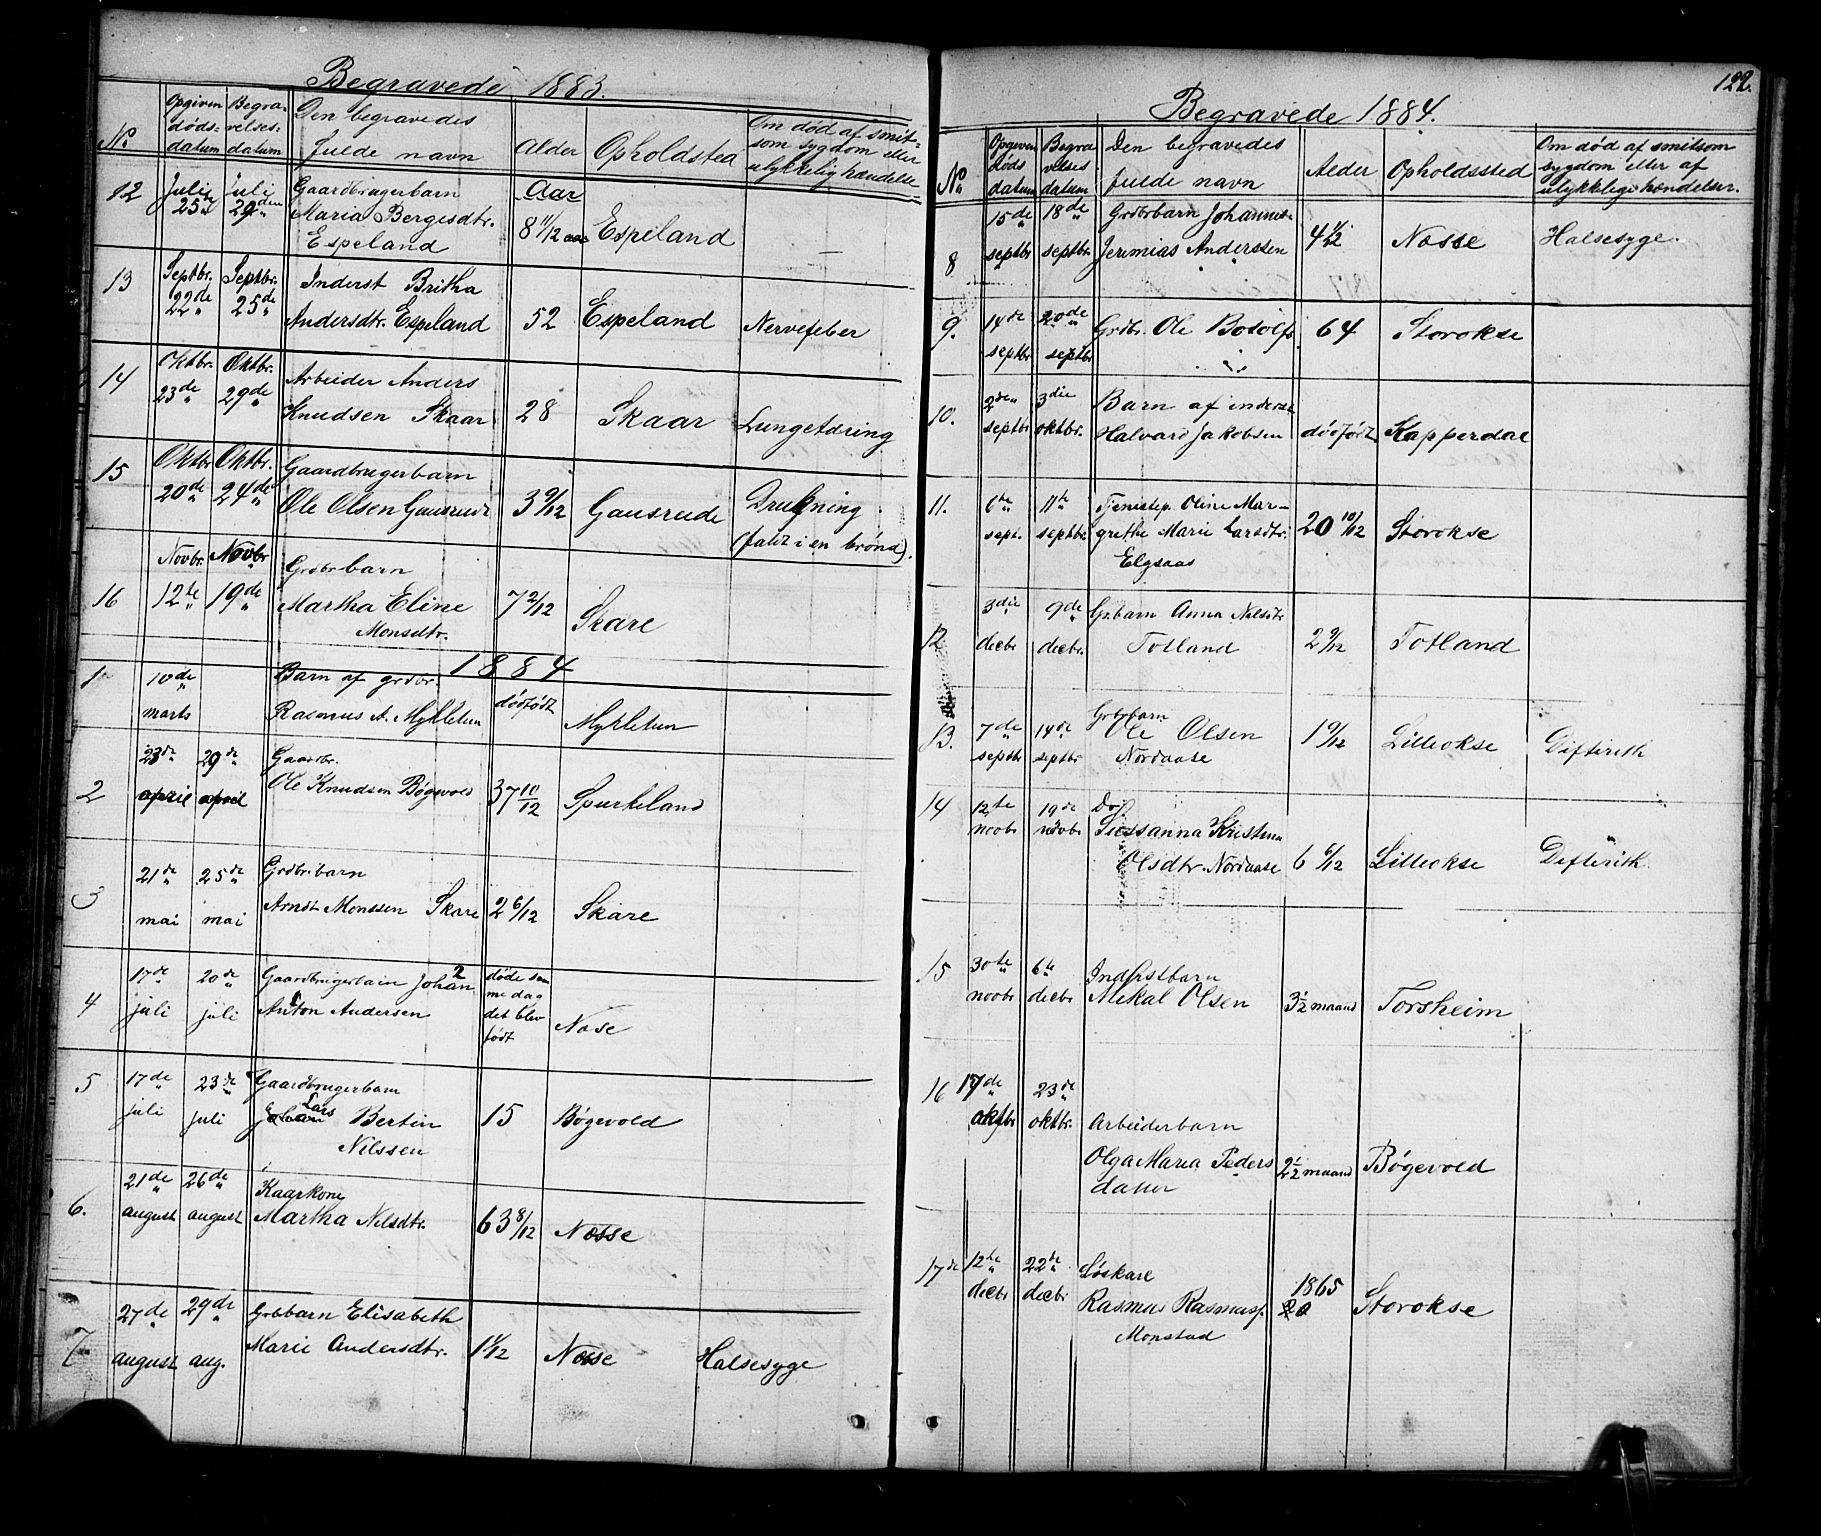 Begravede 1883.
No
Opgiven dødsdatum
Begravelsesdatum
Den begravedes fulde navn
Alder
Opholdsted
Om død af smitsom sygdom eller ulykkelig hændelse
12 Juli 25de Juli 29den Gaardbrugerbarn
Maria Bergesdtr.
Espeland
Aar
8 11/12 aar Espeland —
13 Septbr. 22de Septbr. 25de Inderst Britha
Andersdtr. Espeland 52 Espeland Nervefeber
14 Oktbr. 23de Oktbr. 29de Arbeider Anders
Knudsen Skaar 28 Skaar Lungetæring
15 Oktbr 20de Oktbr. 24de Gaardbrugerbarn
Ole Olsen Gausrude 3 9/12 Gausrude Drukning
(faldt i en brønd).
16 Novbr. 12te Novbr 19de Grdbrbarn
Martha Eline
Monsdtr. 7 2/12 Skare
1884
1 10de marts Barn af grdbr.
Rasmus A. Mykletun dødfødt Mykletun
2 23de april 29de april Gaardbr.
Ole Knudsen Bøgevold 37 10/12 Spurkeland
3 21de mai 25de mai Grdbr.barn
Arndt Monssen Skare 2 6/12 Skare
4 17de juli 20de juli Gaardbrugerbarn Johan
Anton Andersen
døde samme dag det blev født Nose
5 17de juli 23de juli Gaardbrugerbarn
Lars Bertin
Nilssen 15 Bøgevold
6. 21de august 26de august Kaarkone
Martha Nilsdtr. 63 8/12 Nosse
7 27de august 29de aug. Grbbarn Elisabeth
Marie Andersdtr. 1 1/12 Nosse Halsesyge
122.
Begravede 1884.
No
Opgiven døds datum
Begravelses datum
Den begravedes fulde navn
Alder
Opholdssted
Om død af smitsom sygdom eller af ulykkelige hændelser.
8 15de septbr 18de septbr. Grdbrbarn Johannes
Jeremias Anderssen 4 1/2 Nosse Halsesyge.
9. 14de septbr 20de septbr Grdbr. Ole Botolfs. 64 Storokse
10. 2den septbr 3die oktbr. Barn af inderst
Halvard Jakobsen dødfødt Kapperdal
11. 6te sept. 11te septbr. Tjenestep. Oline Mar-
grethe Marie Larsdtr.
Elgsaas 20 10/12 Storokse
12 3die decbr 9de decbr. Gr.barn Anna Nilsdtr
Totland 2 9/12 Totland
13. 7de septbr 14de septbr Grbrbarn
Ole Olsen
Nordaase 1 9/12 Lilleokse Difterith
14 12te novbr 19de novbr. Do
Sussanna Kristina
Olsdtr. Nordaase 6 6/12 Lilleokse Difterith
15 30te novbr 6te decbr Inderstbarn
Mikal Olsen 3 1/2 maand Torsheim
16 17de oktbr 23de oktbr. Arbeiderbarn
Olga Maria Peders
datter 2 1/2 maand Bøgevold
17de 12te decbr 22de decbr Løskare
Rasmus Rasmuss.
Monstad 1865 Storokse